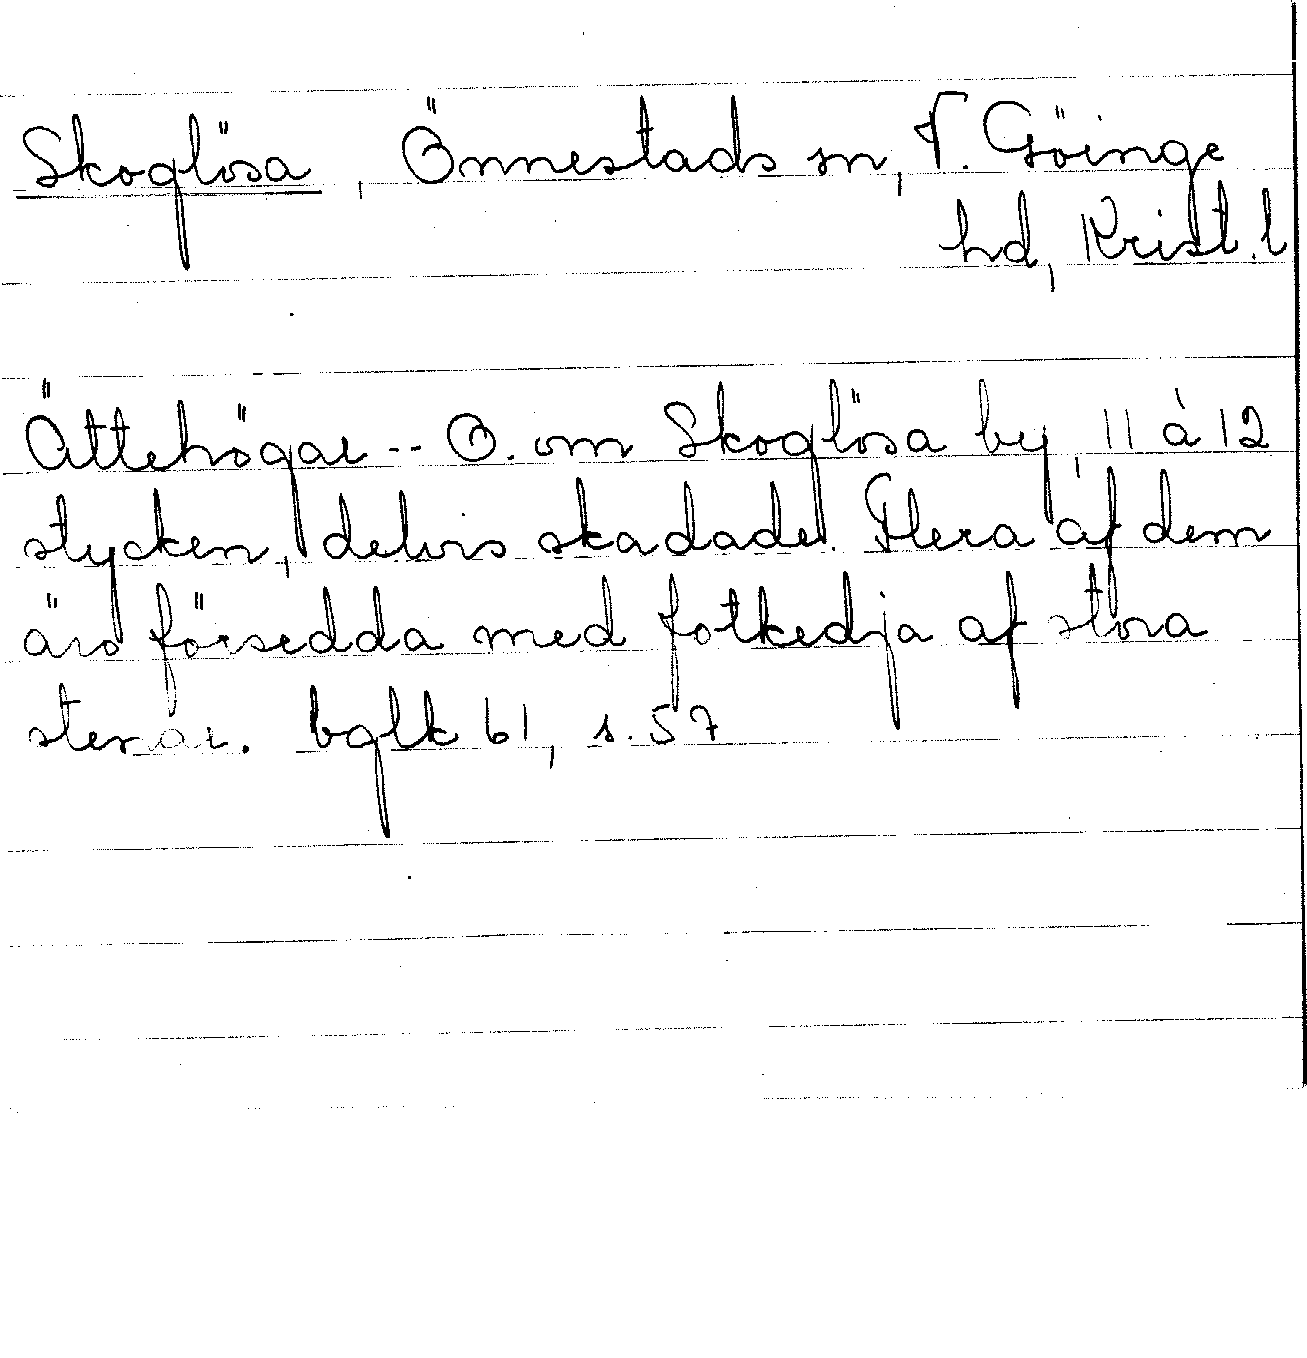 Skoglösa, Önnestads sn, V. Göinge
hd, Krist. l
Ättehögar -- O. om Skoglösa by, 11 à 12
stycken, delvis skadade. Flera af dem
äro försedda med fotkedja af stora
stenar. bglk 61, s. 57